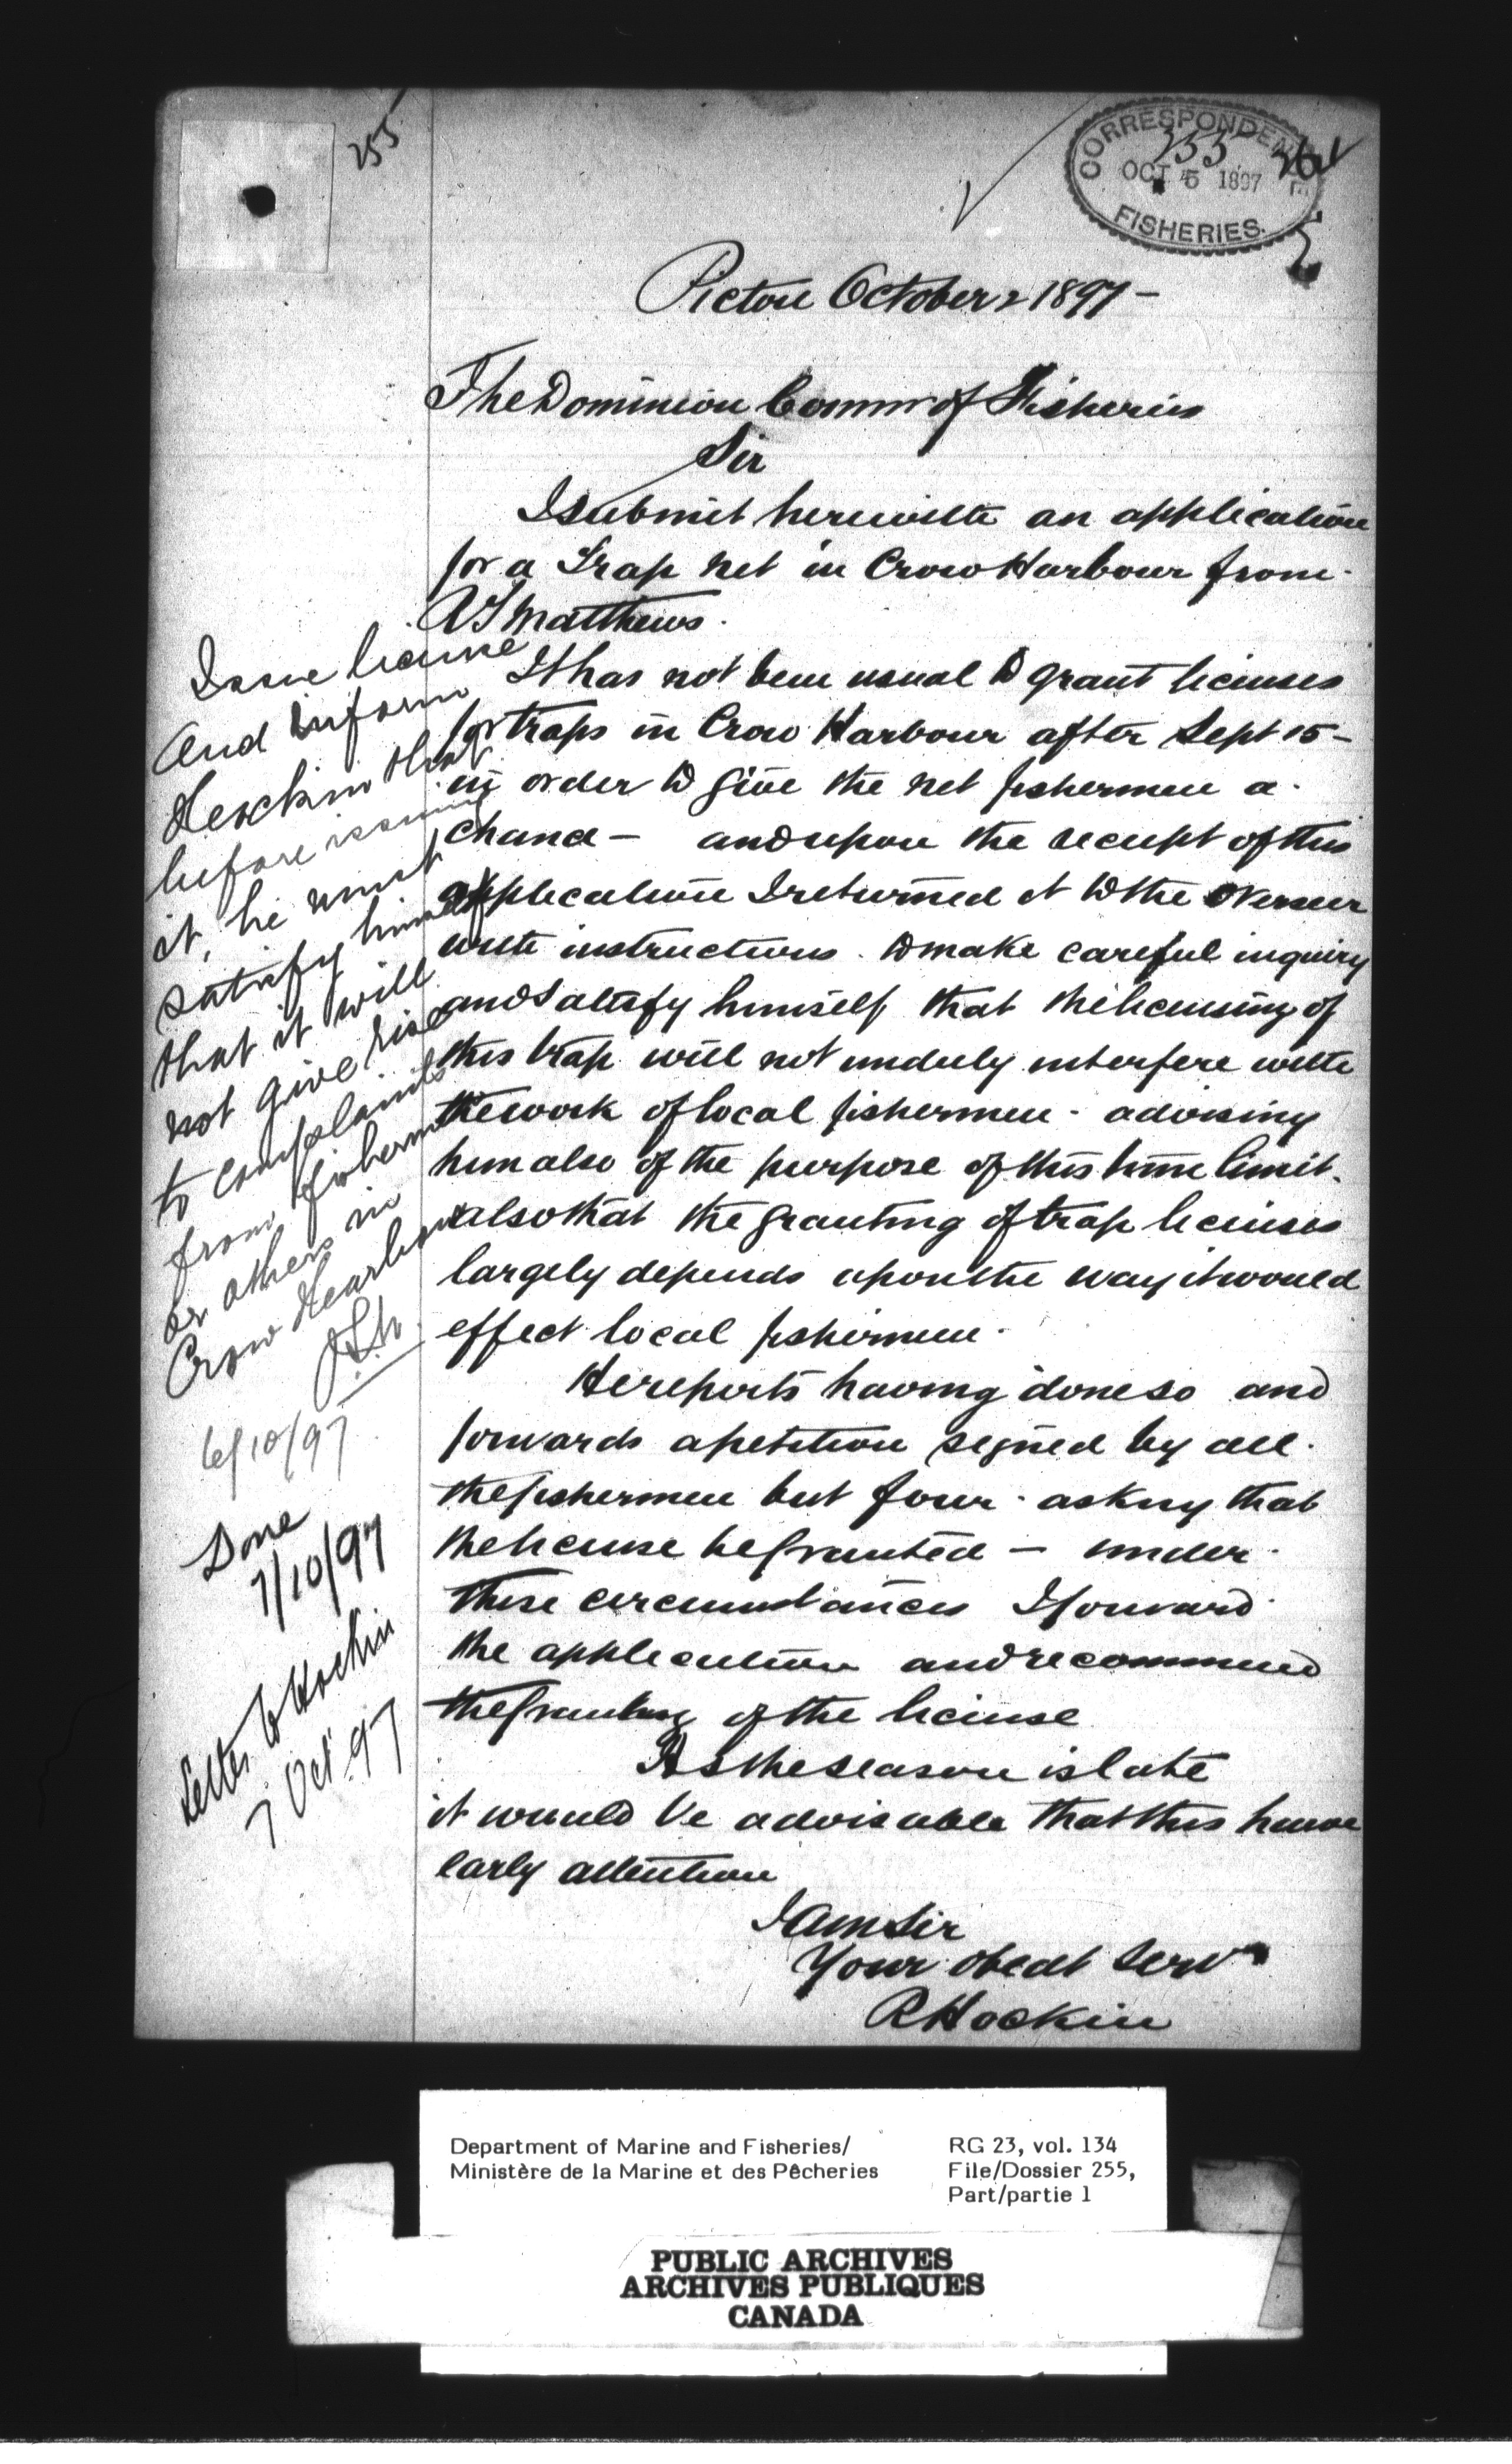 255
CORRESPONDENCE
255
OCT 5 1897
FISHERIES.
Pictou October 2 1897 -
The Dominion Commr of Fisheries
Sir
I submit herewith an application
for a Trap net in Crow Harbour from
A J Matthews.
It has not been usual to grant licenses
for traps in Crow Harbour after Sept 15 -
in order to give the net fishermen a
chance - and upon the receipt of this
application I returned it to the Overseer
with instructions to make careful inquiry
and satisfy himself that the licensing of
this trap will not unduly interfere with
the work of local fishermen - advising
him also of the purpose of this time limit.
also that the granting of trap licenses
largely depends upon the way it would
effect local fishermen.
He reports having done so and
forwards a petition signed by all
the fishermen but four - asking that
the license be granted - under
these circumstances I forward
the application and recommend
the granting of the license
As the season is late
it would be advisable that this have
early attention
I am Sir
Your obedt Servt
R Hockin
Issue license
and inform
Hockin that
before issuing
it, he must
satisfy himself
that it will
not give rise
to complaints
from fishermen
or others in
Crow Hearbour
6/10/97
Done
7/10/97
Letter to Hockin
7 Oct 97
Department of Marine and Fisheries/
Ministère de la Marine et des Pêcheries
RG 23, vol. 134
File/Dossier 255,
Part/partie 1
PUBLIC ARCHIVES
ARCHIVES PUBLIQUES
CANADA